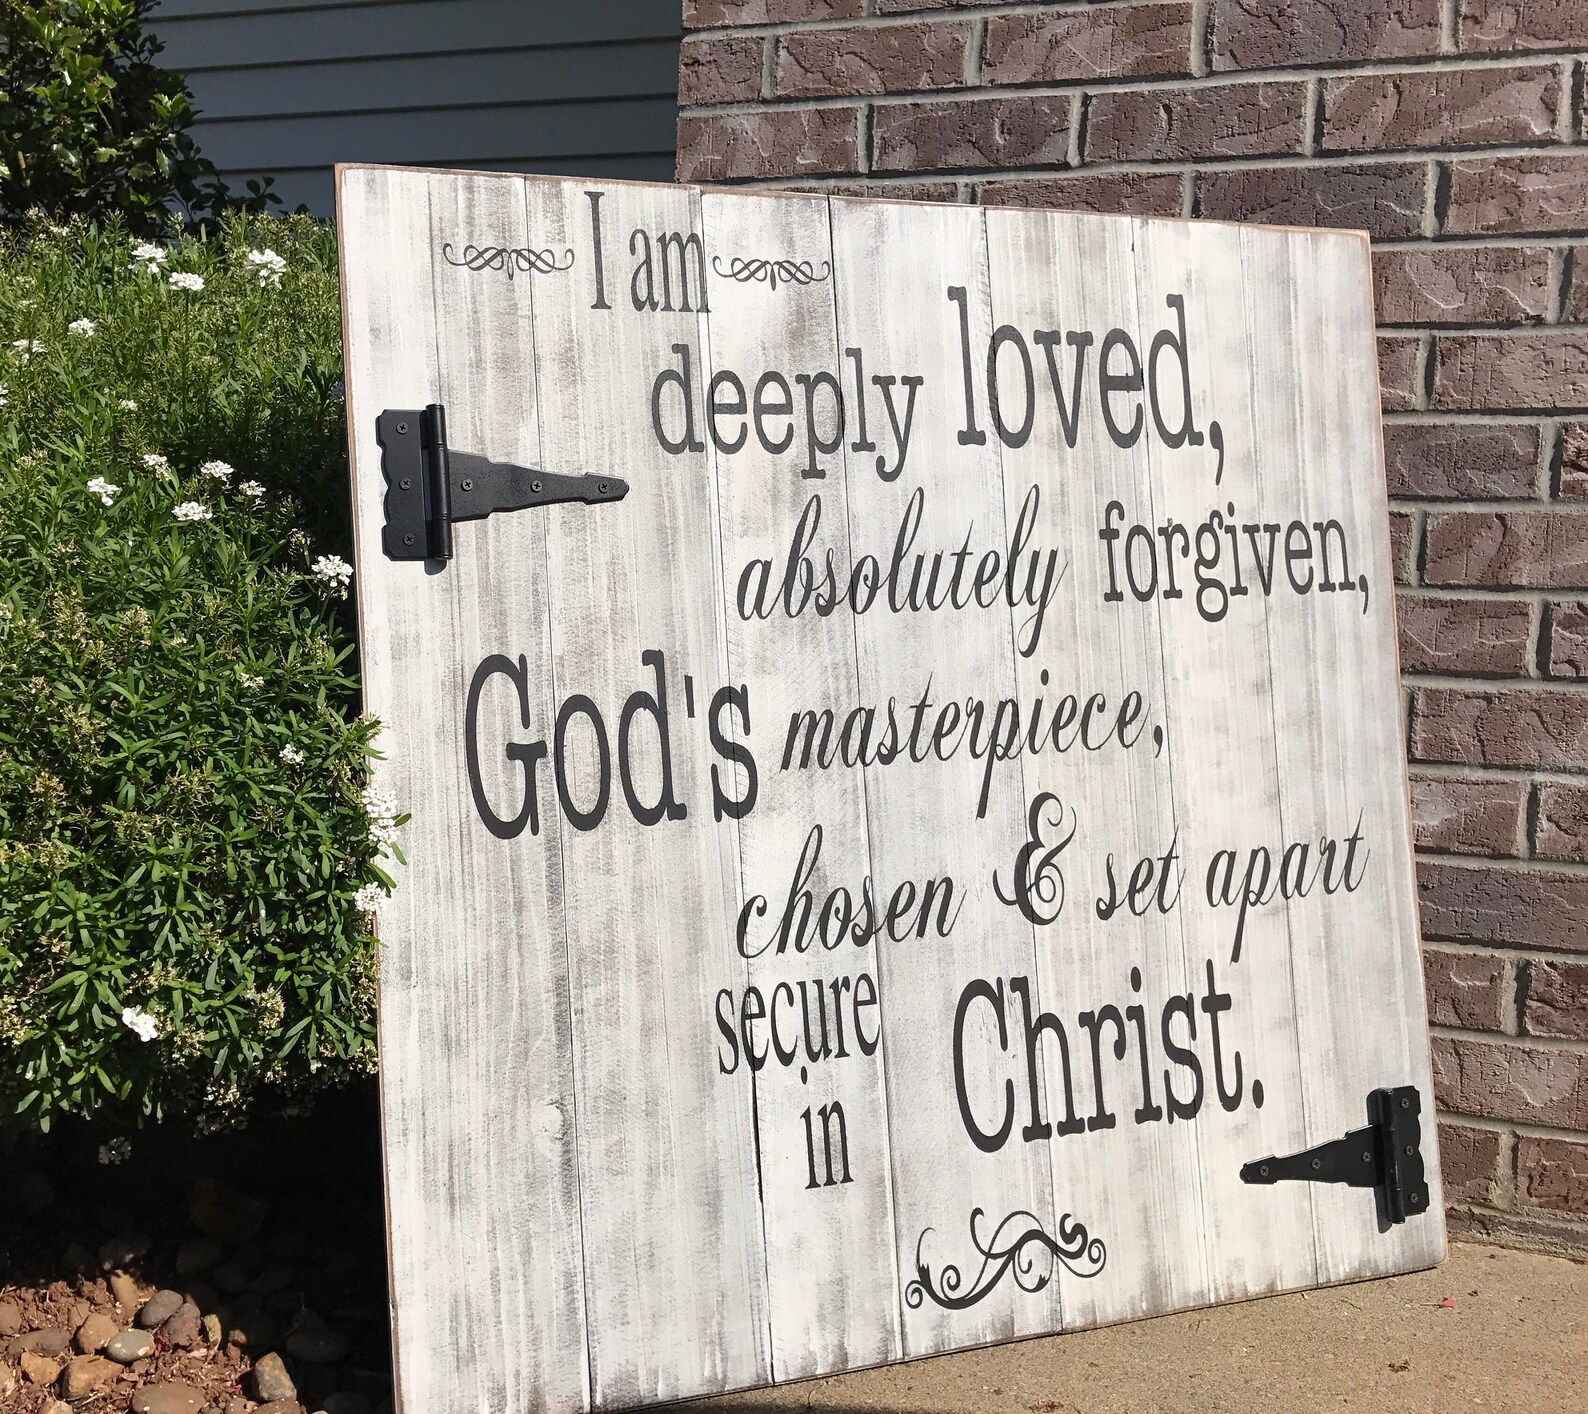 I am
deeply loved,
absolutely forgiven,
God's masterpiece,
chosen & set apart
secure
in Christ.